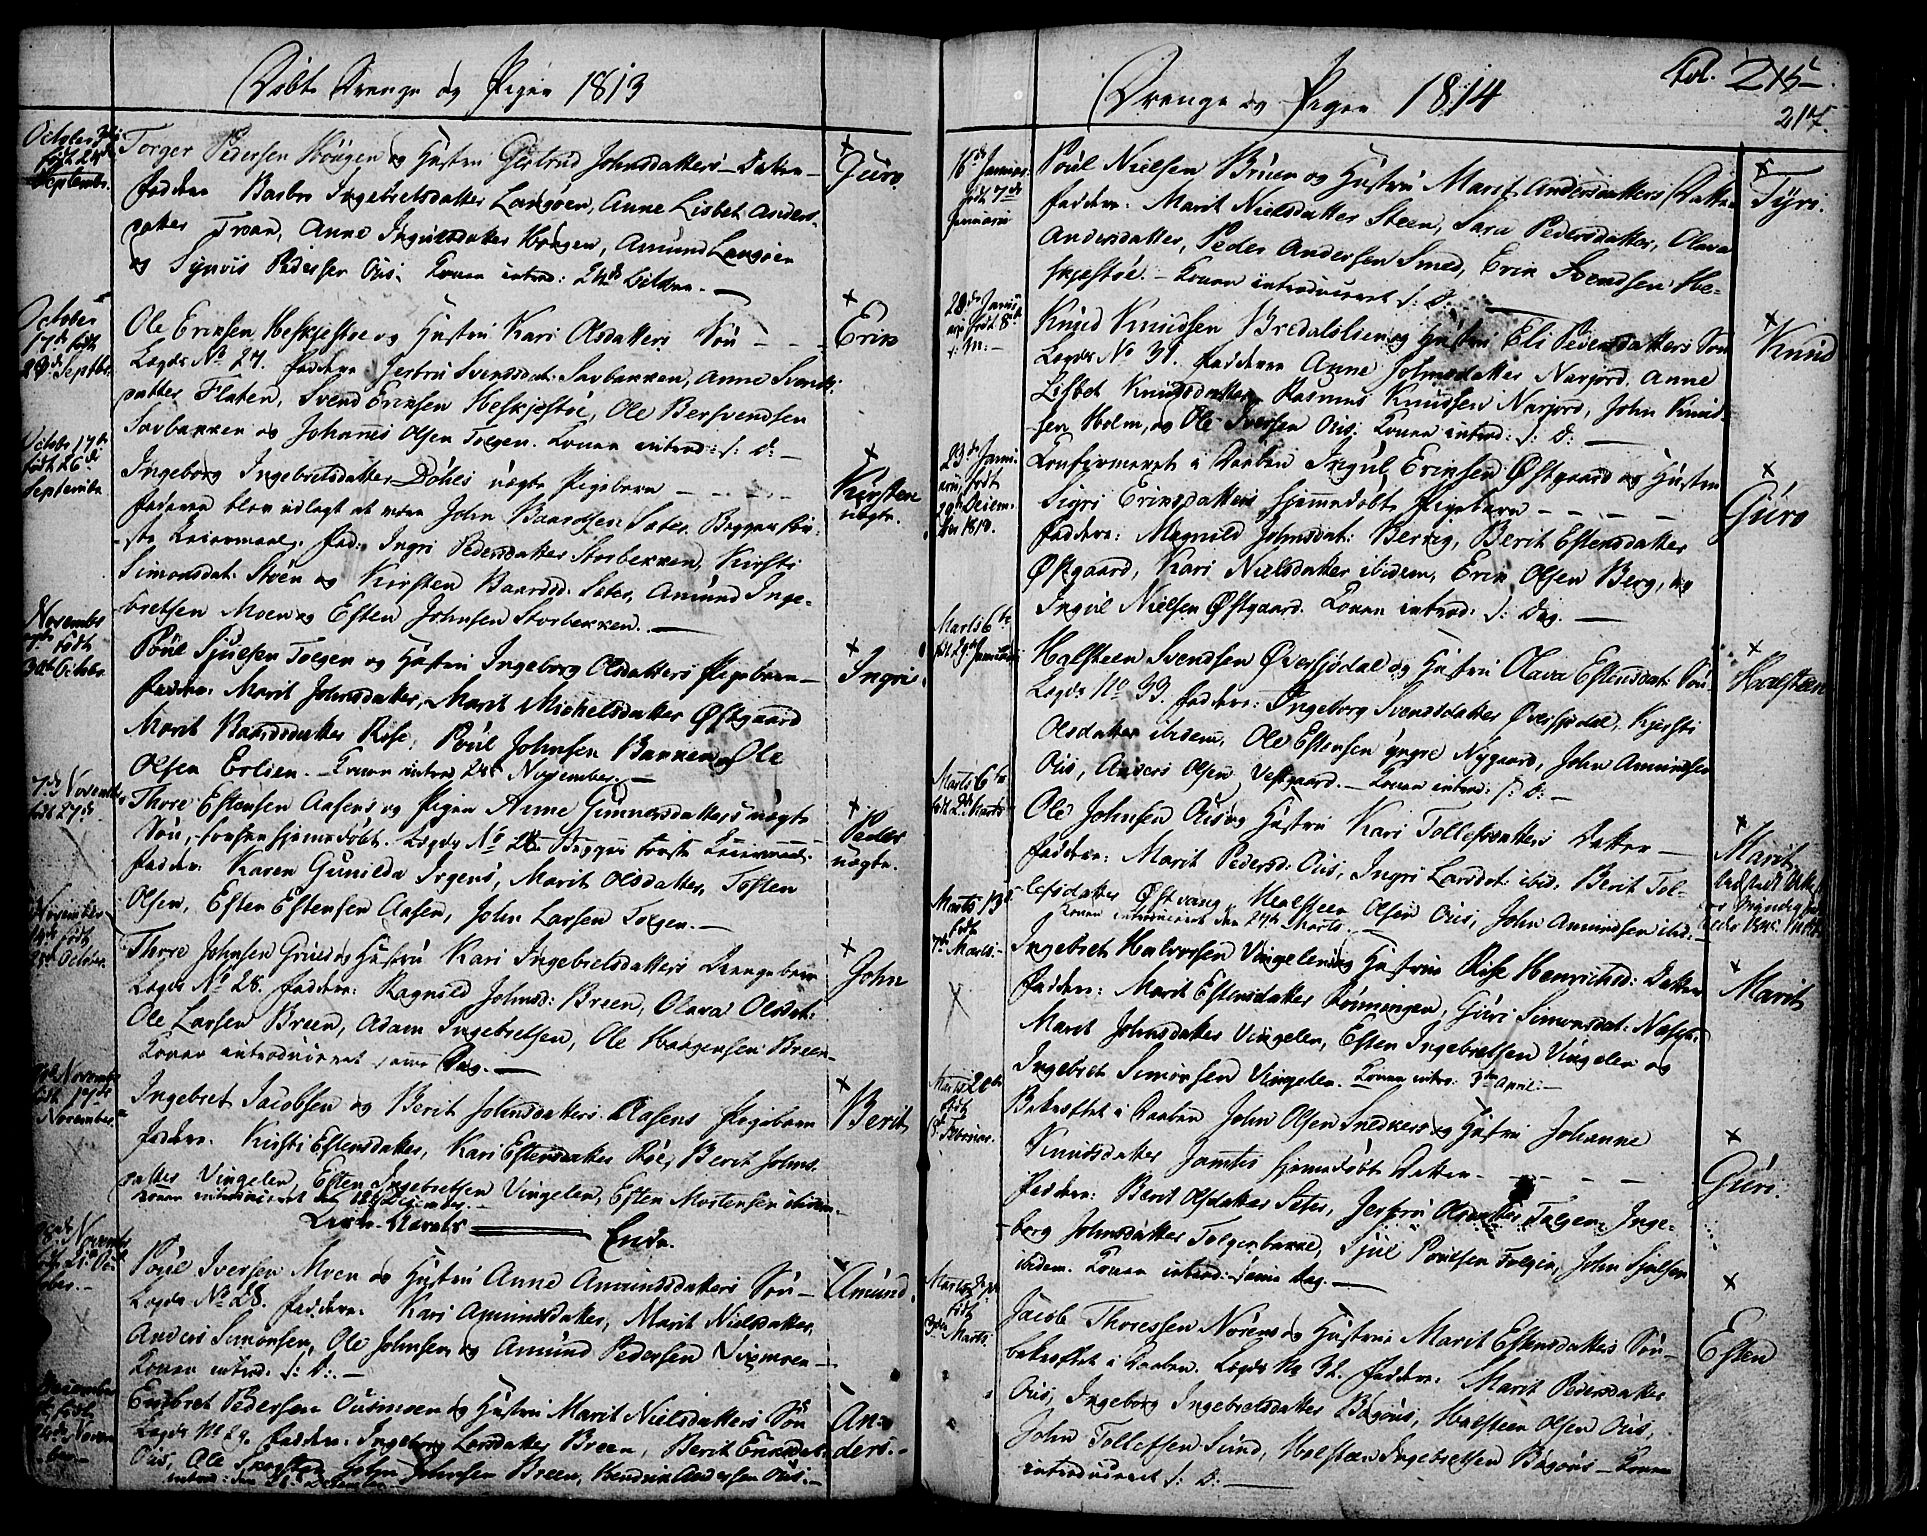 Døbte Drenge og Piger 1813
Octobr 3die
født 24de
Septembr.
Torger Pedersen Hougen og Hustru Gjertrud Johnsdatters Datter
Guro
Faddere Barbro Ingebretsdatter Langøen, Anne Lisbet Anders-
datter Troan, Anne Ingulsdatter Hougen, Amund Langøen
og Synvis Pedersen Ous. Konen introd: 24de Octbr.
October
17de født
29de Septbr.
Ole Eriksen Heskjestøe og Hustru Kari Olsdatters Søn
Erik
Legds No 27. Faddere Jertru Svensdat: Savbakken, Anne Svends-
datter Flaten, Svend Eriksen Heskjestøe, Ole Bersvendsen
Savbakken og Johannes Olsen Tolgen. Konen introd: s: D:
Octobr 17de
født 26de
Septembr
Ingeborg Ingebretsdatter Døhles uægte Pigebarn
Kirsten
uægte.
Faderen blev udlagt at være John Baardsen Sæter. Begges før-
ste Leiermaal. Fad: Ingri Pedersdatter Storbekken, Kirsti
Simonsdat: Støen og Kirsten Baardsd: Sæter, Amund Inge-
bretsen Moen og Esten Johnsen Storbekken.
Novembr
født
October
Poul Sjulsen Tolgen og Hustru Ingeborg Olsdatters Pigebarn
Ingri
Faddere: Marit Johnsdatter, Marit Michelsdatter Østgaard
Marit Baardsdatter Rise, Poul Johnsen Bakken og Ole
Olsen Erlien. Konen introd 28de November.
7de Novembr
født 27de
Thore Estensen Aasens og Pigen Anne Gunnersdatters uægte
Peder
uægte.
Søn, forhen hjemmedøbt. Legds No 28. Begges første Leiermaal.
Faddere: Karen Gunilda Irgens, Marit Olsdatter, Tosten
Olsen, Esten Estensen Aasen, John Larsen Tolgen.
November
14de født
October
Thore Johnsen Grued og Hustru Kari Ingebretsdatters Drengebarn
John
Legds No 28. Faddere: Ragnild Johnsd: Breen, Olava Olsdat:
Ole Larsen Breen, Adam Ingebretsen, Ole Haagensen Breen
Konen introduceret samme Dag.
Novembr
født
November
Ingebret Jacobsen og Berit Johnsdatters Aasens Pigebarn
Berit
Faddere. Kirsti Estensdatter, Kari Estensdatter Røe, Berit Johns-
datter Vingelen, Esten Ingebretsen Vingelen, Esten Mortensen ibidem
Konen introduceret den 12te December.
Kirke-Aarets Ende.
28de Novembr
født 21de Octo-
ber.
Poul Iversen Moen og Hustru Anne Amundsdatters Søn
Amund
Legds No 28. Faddere. Kari Amundsdatter, Marit Nielsdatter,
Anders Simonsen, Ole Johnsen og Amund Pedersen Vigmoen
Konen introd: s: D:
December
født
Novem-
ber
Enbret Pedersen Ousmoen og Hustru Marit Nielsdatters Søn
An-
ders.
Legds No 29. Faddere: Ingeborg Larsdatter Breen, Berit
Ous, Ole John Johnsen Breen, Hendrik Andersen Ous.
introd: den 28de December
Drenge og Piger 1814
Fol. 215
217.
16de Januar
født 7de
Januarii
Poul Nielsen Bruen og Hustru Marit Andersdatters Datter
Tyri.
Faddere: Marit Nielsdatter Steen, Sara Pedersdatter, Olava
Andersdatter, Peder Andersen Smed, Erik Svendsen He-
skjestøe. Konen introduceret s: D:
23de Janu-
arii født 8de
s: M:
Knud Knudsen Bredalslien og Hustru Eli Pedersdatters Søn
Knud
Legds No 31. Faddere Anne Johnsdatter Narjord, Anne
Lisbet Knudsdatter, Rasmus Knudsen Narjord, John Knud-
sen Holm, og Ole Iversen Ous: Konen introd: s: D:
23de Janu-
arii, født
Decem-
ber 1813.
Confirmeret i Daaben Ingul Eriksen Østgaard og Hustru
Guro
Sigri Eriksdatters hjemmedøbt Pigebarn
Faddere: Magnild Johnsdat: Berrig, Berit Estensdatter
Østgaard, Kari Nielsdatter ibidem, Erik Olsen Berg, og
Ingul Nielsen Østgaard. Konen introd: s: Dag.
Marts 6te
født 29de Januarii
Halsteen Svendsen Øversjødal og Hustru Olava Estensdat: Søn
Halsteen
Legds No 33. Faddere: Ingeborg Svendsdatter Øversjødal, Kjersti
Olsdatter ibidem, Ole Estensen yngre Nygaard, John Amundsen
Ous, Anders Olsen Vestgaard. Konen introd: s: D:
Marts 6te
født 2de Marts
Ole Johnsen Ous og Hustru Kari Tollefsdatters Datter
Marit
Faddere: Marit Pedersd: Ous, Ingri Larsdat: ibid: Berit Tol-
lefsdatter Østvang, Halsteen Olsen Ous, John Amundsen ibid:
Konen introduceret den 27de Marts.
Marts 13de
født
7de Marts.
Ingebret Halvorsen Vingelen og Hustrue Rise Henrichsd: Datter
Marit
Faddere: Marit Estensdatter Rønningen, Guri Simonsdat:
Marit Johnsdatter Vingelen, Esten Ingebretsen Vingelen og
Ingebret Simonsen Vingelen. Konen intro: 3die April.
Marts 20de
født
Februar.
Bekræftet i Daaben John Olsen Snedkers og Hustru Johanne
Guri.
Knudsdatter Jamtes hjemmedøbte Datter
Faddere: Berit Olsdatter Seter, Jertru Olsdatter Tolgen, Inge-
borg Johnsdatter Tolgenbakke, Sjul Poulsen Tolgen, John Sjulsen
ibidem. Konen introd: samme Dag.
Marts
født
Marts
Jacob Thoresen Norens og Hustrue Marit Estensdatters Søn
Esten
bekræftet i Daaben. Legds No 34. Faddere: Marit Pedersdatter
Ous, Ingeborg Ingebretsdatter Bagous, Halsteen Olsen Ous,
John Tollefsen Sund, Halsteen Ingebretsen Bagous. Konen
introduceret s: D: